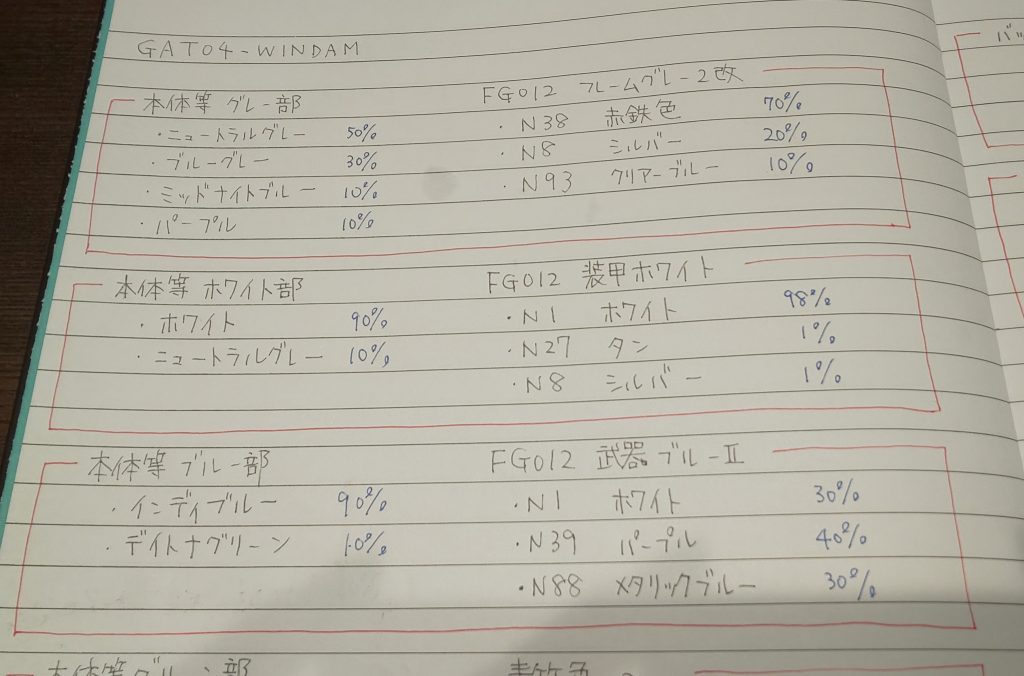 GAT04-WINDAM
本体等 グレー部
・ニュートラルグレー 50%
・ブルーグレー 30%
・ミッドナイトブルー 10%
・パープル 10%
FG012 フレームグレー2改
・N38 赤鉄色 70%
・N8 シルバー 20%
・N93 クリアーブルー 10%
本体等 ホワイト部
・ホワイト 90%
・ニュートラルグレー 10%
FG012 装甲ホワイト
・N1 ホワイト 98%
・N27 タン 1%
・N8 シルバー 1%
本体等 ブルー部
・インディブルー 90%
・デイトナグリーン 10%
FG012 武器ブルーⅡ
・N1 ホワイト 30%
・N39 パープル 40%
・N88 メタリックブルー 30%
本体等
部
バッ